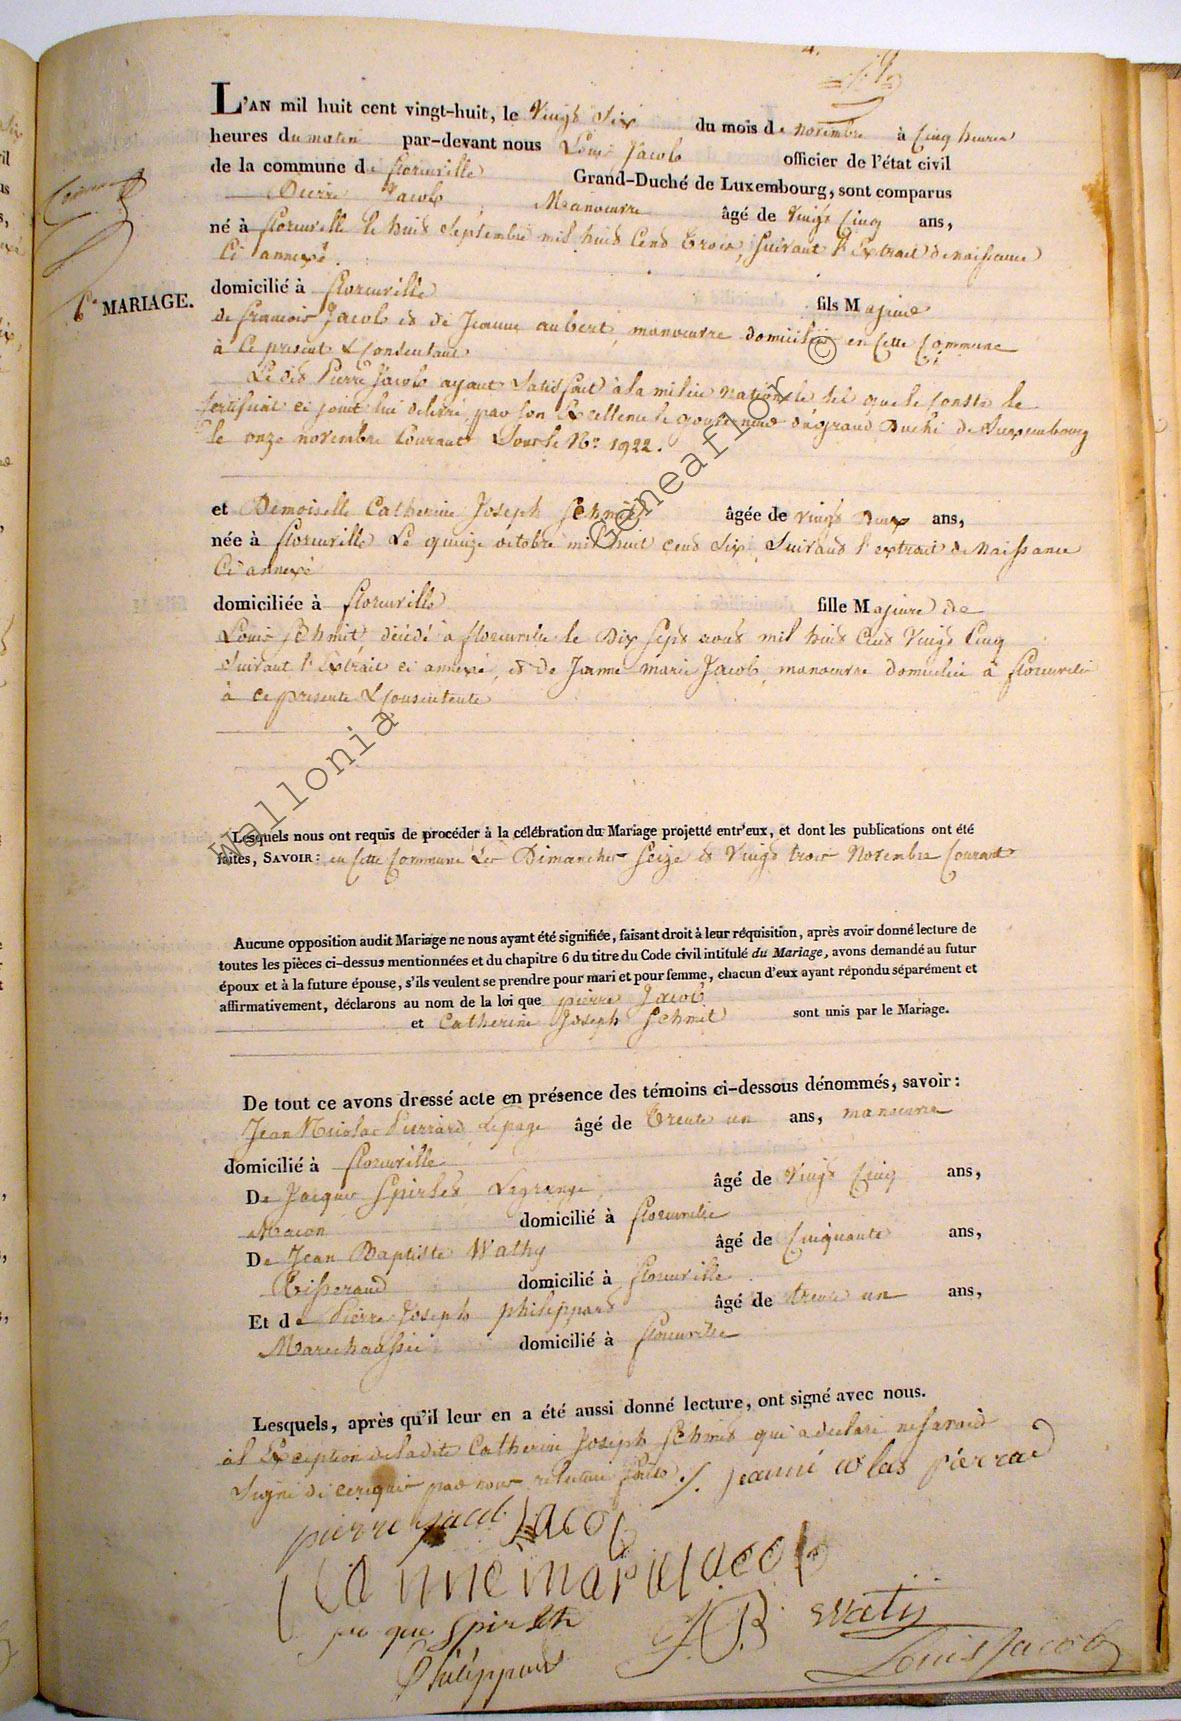 L'AN mil huit cent vingt-huit, le Vingt Six du mois de novembre à Cinq heures
heures du matin par-devant nous Louis Jacob officier de l'état civil
de la commune de florenville Grand-Duché de Luxembourg, sont comparus
Pierre Jacob, Manoeuvre âgé de Vingt Cinq ans,
né à florenville le huit Septembre mil huit Cent trois, Suivant l'Extrait de naissance
Ci annexé.
domicilié à florenville fils Majeur
6e MARIAGE.
de francois Jacob et de Jeanne aubert, manoeuvre domicilié en Cette Commune
à Ce present & Consentant
Le dit Pierre Jacob ayant Satisfait à la milice nationale tel que le Conste le
Certificat ci joint lui delivré par Son Excellence le gouverneur du grand Duché de Luxembourg
le onze novembre Courant Sous le No 1922.
et Demoiselle Catherine Joseph Schmit âgée de vingt Deux ans,
née à florenville Le quinze octobre mil huit cent Six, Suivant l'extrait de Naissance
Ci annexé
domiciliée à florenville fille Majeure de
Louis Schmit décédé à florenville le Dix Sept août mil huit Cent Vingt Cinq
Suivant l'Extrait ci annexé, et de Jeanne marie Jacob, manoeuvre domiciliée à florenville
à ce presente & Consentente
Lesquels nous ont requis de procéder à la célébration du Mariage projetté entr'eux, et dont les publications ont été
faites, SAVOIR: en Cette Commune Les Dimanches Seize et Vingt trois Novembre Courant
Aucune opposition audit Mariage ne nous ayant été signifiée, faisant droit à leur réquisition, après avoir donné lecture de
toutes les pièces ci-dessus mentionnées et du chapitre 6 du titre du Code civil intitulé du Mariage, avons demandé au futur
époux et à la future épouse, s'ils veulent se prendre pour mari et pour femme, chacun d'eux ayant répondu séparément et
affirmativement, déclarons au nom de la loi que pierre Jacob
et Catherine Joseph Schmit sont unis par le Mariage.
De tout ce avons dressé acte en présence des témoins ci-dessous dénommés, savoir:
Jean Nicolas Pierrard Lepage âgé de trente un ans, manoeuvre
domicilié à florenville
De Jacque Spirlet Legrange, âgé de Vingt Cinq ans,
Macon domicilié à florenville
De Jean Baptiste Wathy âgé de Cinquante ans,
Tisserand domicilié à florenville
Et de Pierre Joseph Philippard âgé de trente un ans,
Marechaussée domicilié à florenville
Lesquels, après qu'il leur en a été aussi donné lecture, ont signé avec nous.
à l'Exception de la dite Catherine Joseph Schmit qui a declaré ne Savoir
Signé de ce requis par nous relecture faite ./. jeanni colas pierrad
pierre jacob Jacob
jannemariejacob
jaque Spirlet J.B watij
Philippard Louis Jacob
Wallonia Geneaflor ©